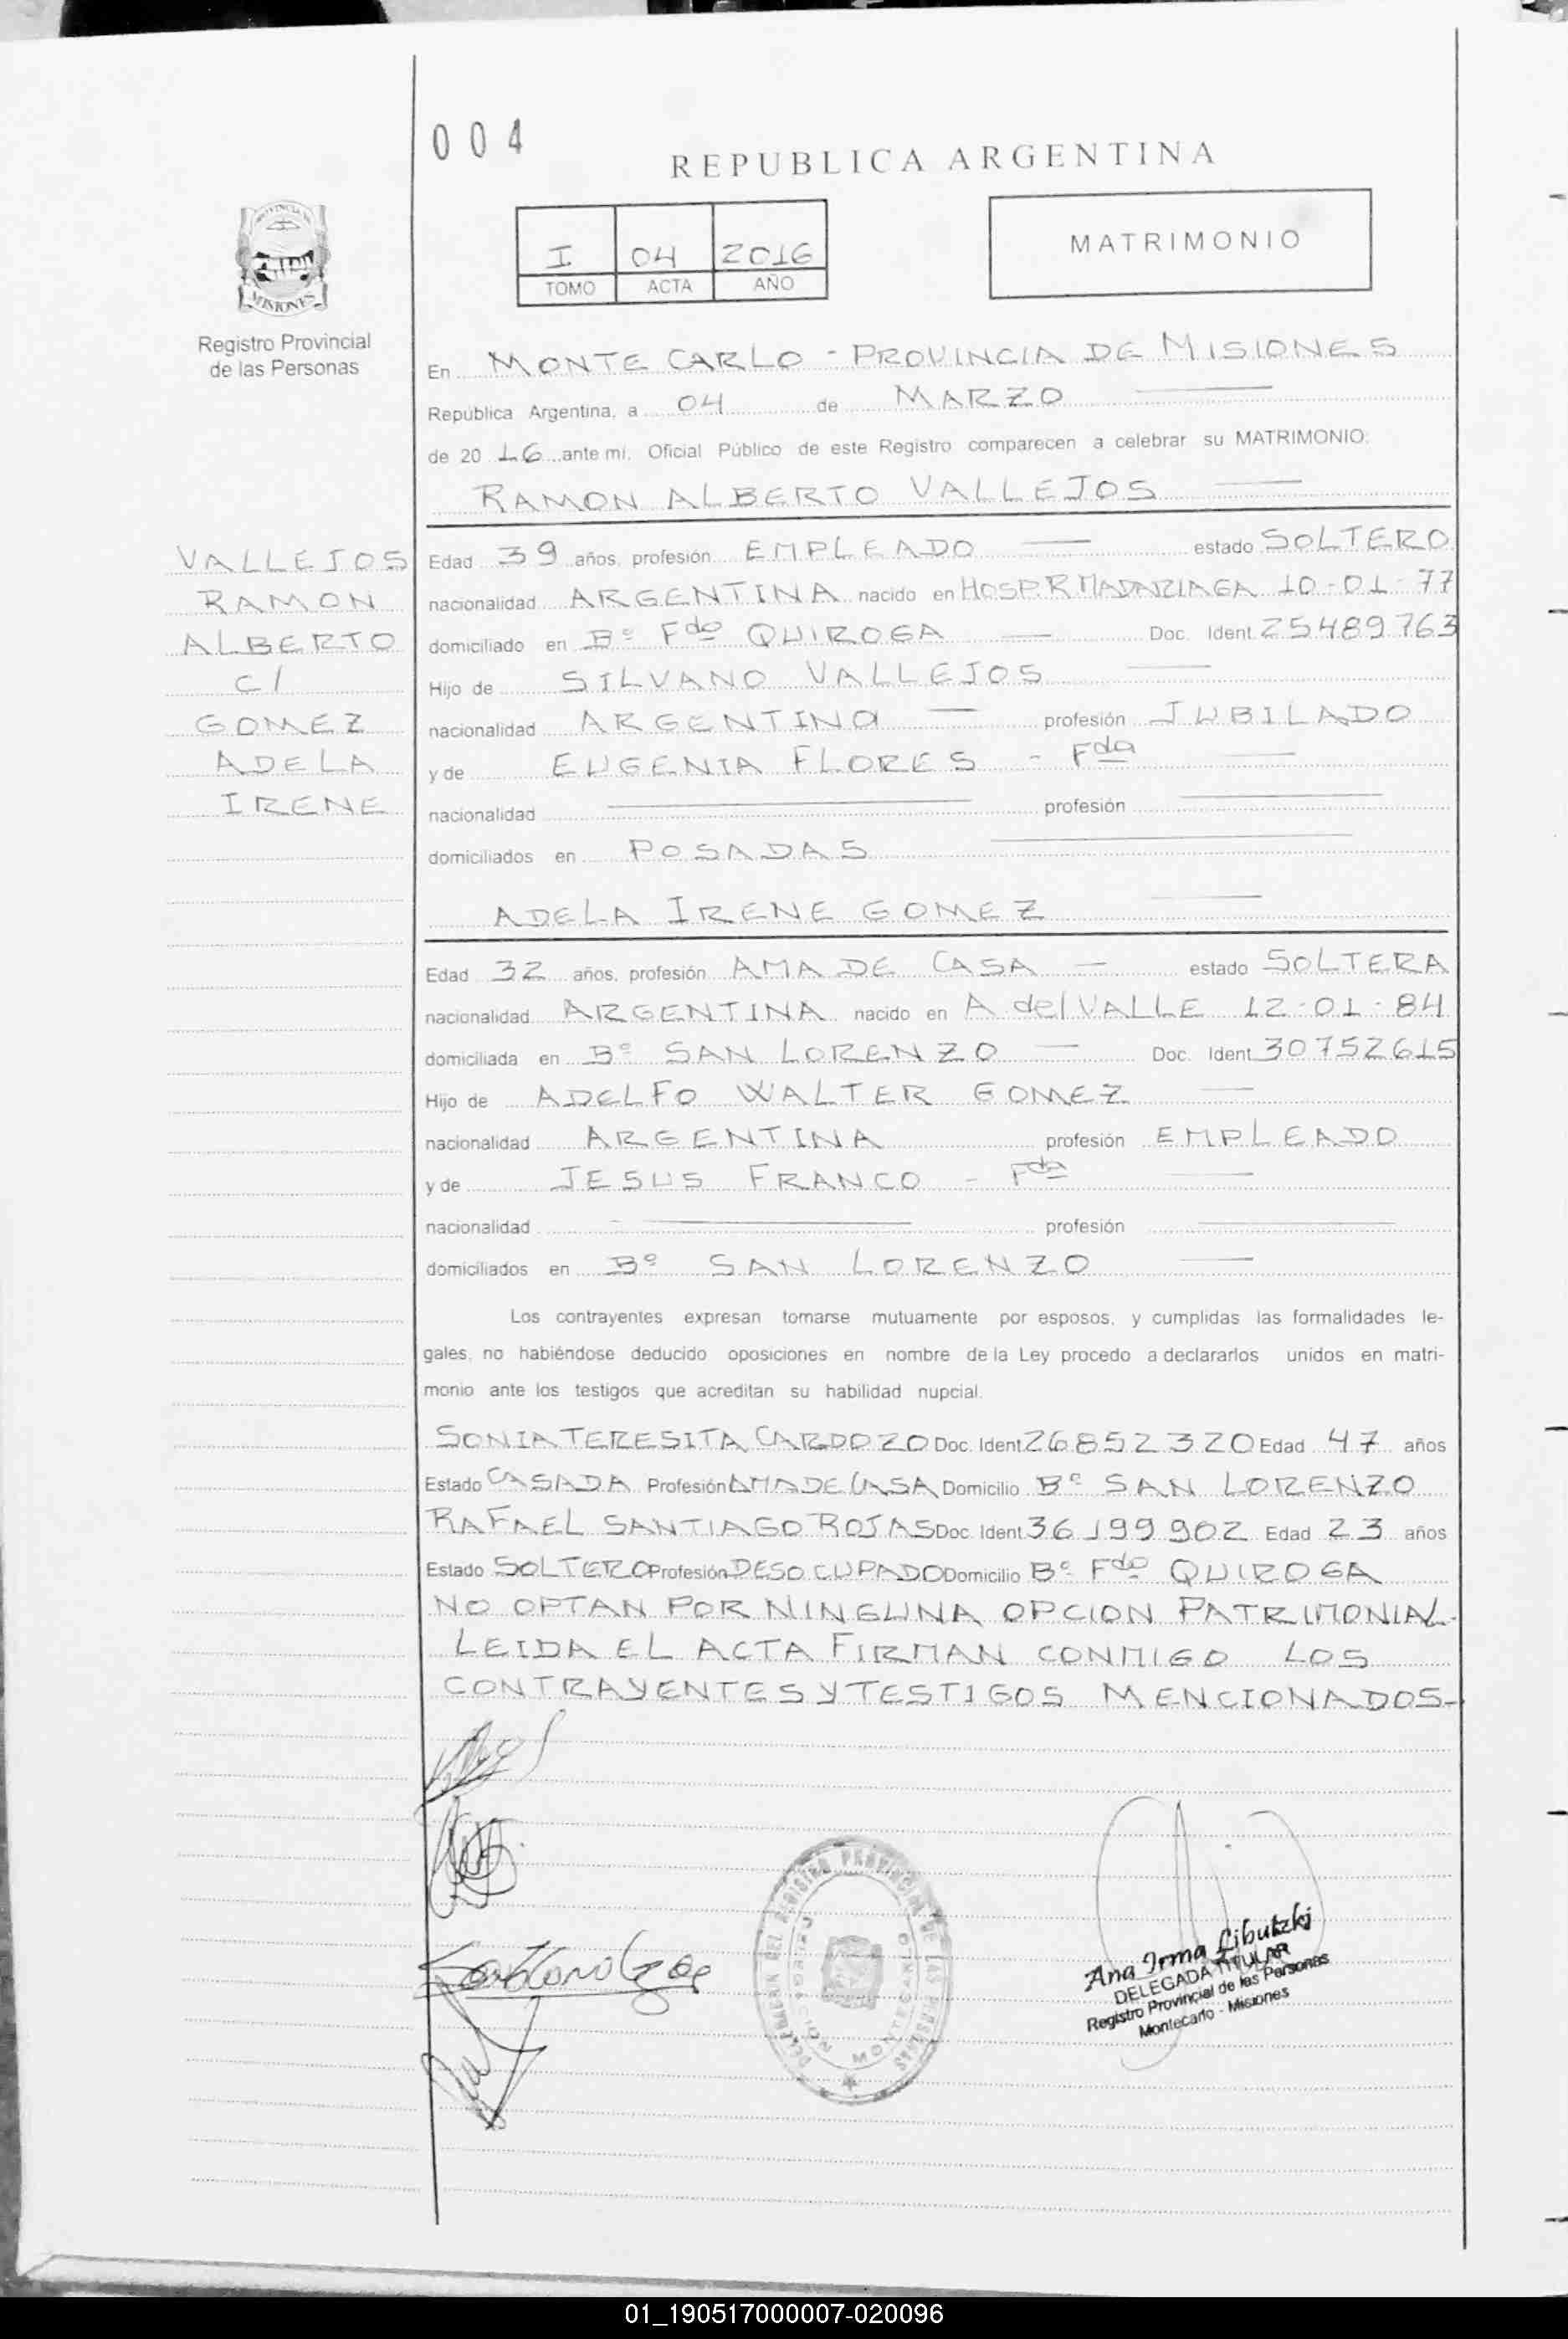 004
REPUBLICA ARGENTINA
I 04 2016
TOMO ACTA AÑO
MATRIMONIO
MISIONES
Registro Provincial
de las Personas
En MONTE CARLO - PROVINCIA DE MISIONES
República Argentina, a 04 de MARZO
de 20 16 ante mí, Oficial Público de este Registro comparecen a celebrar su MATRIMONIO:
RAMON ALBERTO VALLEJOS
VALLEJOS
RAMON
ALBERTO
C/
GOMEZ
ADELA
IRENE
Edad 39 años, profesión EMPLEADO estado SOLTERO
nacionalidad ARGENTINA nacido en HOSP. R MADARIAGA 10-01-77
domiciliado en Bº Fdo QUIROGA Doc. Ident 25489763
Hijo de SILVANO VALLEJOS
nacionalidad ARGENTINA profesión JUBILADO
y de EUGENIA FLORES - Fda
nacionalidad profesión
domiciliados en POSADAS
ADELA IRENE GOMEZ
Edad 32 años, profesión AMA DE CASA estado SOLTERA
nacionalidad ARGENTINA nacido en A del VALLE 12-01-84
domiciliada en Bº SAN LORENZO Doc. Ident 30752615
Hijo de ADELFO WALTER GOMEZ
nacionalidad ARGENTINA profesión EMPLEADO
y de JESUS FRANCO - Fda
nacionalidad profesión
domiciliados en Bº SAN LORENZO
Los contrayentes expresan tomarse mutuamente por esposos, y cumplidas las formalidades le-
gales, no habiéndose deducido oposiciones en nombre de la Ley procedo a declararlos unidos en matri-
monio ante los testigos que acreditan su habilidad nupcial.
SONIA TERESITA CARDOZO Doc. Ident 26852320 Edad 47 años
Estado CASADA Profesión AMA DE CASA Domicilio Bº SAN LORENZO
RAFAEL SANTIAGO ROJAS Doc. Ident 36199902 Edad 23 años
Estado SOLTERO Profesión DESOCUPADO Domicilio Bº Fdo QUIROGA
NO OPTAN POR NINGUNA OPCION PATRIMONIAL.
LEIDA EL ACTA FIRMAN CONMIGO LOS
CONTRAYENTES Y TESTIGOS MENCIONADOS-
DEL REGISTRO PROVINCIAL DE LAS PERSONAS
MONTECARLO
Ana Irma Libutzki
DELEGADA TITULAR
Registro Provincial de las Personas
Montecarlo - Misiones
01_190517000007-020096